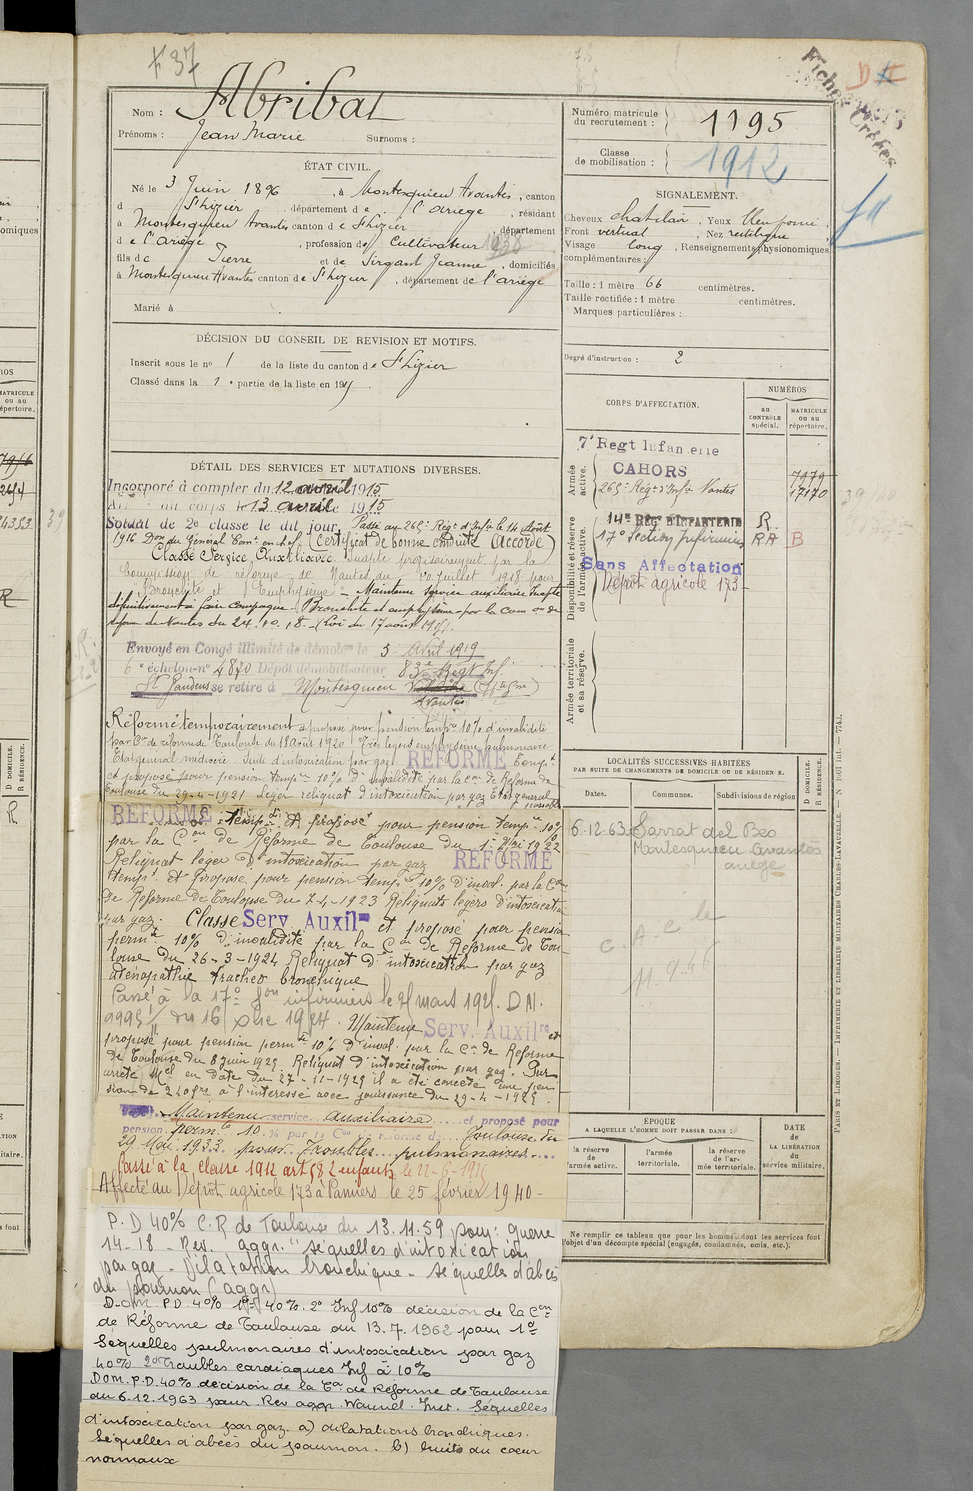 Nom : Abribat
Prénoms : Jean Marie Surnoms :
ÉTAT CIVIL.
Né le 3 Juin 1896, à Montesquieu Avantès, canton
d St Lizier, département de l'ariège, résidant
à Montesquieu Avantès canton de St Lizier, département
de l'ariège, profession de Cultivateur
fils de Pierre et de Sirgant Jeanne, domiciliés
à Montesquieu Avantès canton de St Lizier, département de l'ariège
Marié à
DÉCISION DU CONSEIL DE REVISION ET MOTIFS.
Inscrit sous le no 1 de la liste du canton de St Lizier
Classé dans la 1e partie de la liste en 191
DÉTAIL DES SERVICES ET MUTATIONS DIVERSES.
Incorporé à compter du 12 avril 1915
corps le 13 avril 1915
Soldat de 2e classe le dit jour. Passé au 265e Régt d'Infie le 14 Août
1916 Don du Général Comt en chef. (Certificat de bonne conduite (Accordé)
Classé Service Auxiliaire. Inapte provisoirement par la
Commission de réforme de Nantes du 20 juillet 1918 pour
Bronchite et Emphysème - Maintenu service auxiliaire Inapte
définitivement à faire campagne (Bronchite et emphysème par la Comon de
réforme de Nantes du 24.10.18.-(Loi du 17 août 1915).
Envoyé en Congé illimité de démobon le 5 Avril 1919
6e échelon no 4870 Dépôt démobilisateur 83e Regt Inf.
St Gaudens se retire à Montesquieu Avantès
Réformé temporairement et proposé pour pension tempre 10% d'invalidité
par Con de réforme de Toulouse du 18 Août 1920 Très léger emphysème pulmonaire
Etat général médiocre. Suite d'intoxication par gaz REFORMÉ Tempt
et proposé pour pension tempre 10% d'invalidité par la Con de Réforme de
Toulouse du 29-4-1921 Léger reliquat d'intoxication par gaz Etat général
REFORMÉ Temp. Et proposé pour pension tempre 10%
par la Con de Réforme de Toulouse du 1er Mai 1922
Reliquat léger d'intoxication par gaz REFORMÉ
tempt et proposé pour pension tempre 10% d'inval. par la Con
de Réforme de Toulouse du 7-4-1923 Reliquats légers d'intoxication
par gaz. Classé Serv. Auxilre et proposé pour pension
permte 10% d'invalidité par la Con de Réforme de Tou-
louse du 26-3-1924 Reliquat d'intoxication par gaz
adénopathie trachéo bronchique
Passé à la 17e Son infirmiers le
du 16 Xbre 1924. Maintenu Serv. Auxilre et
proposé pour pension permte 10% d'inval. par la Con de Réforme
de Toulouse du 8 Juin 1925 Reliquat d'intoxication par gaz. Par
arrêté Mel en date du 27-11-1925 il a été concédé une pen
sion de 240frs à l'intéressé avec jouissance du 29-4-1925.
Maintenu service auxiliaire et proposé pour
pension permte 10 % par la Con de réforme de Toulouse du
29 Mai 1933 pour Troubles pulmonaires
Passé à la classe 1912 art 58 2 enfants le
Affecté au Dépôt agricole 173 à Pamiers le 25 février 1940-
P.D 40% C.R de Toulouse du 13.11.59 pour: guerre
14-18 - Rev. aggr. "séquelles d'intoxication
par gaz - Dilatation bronchique - séquelles d'abcès
du poumon (aggr)
D.O.M. P.D. 40% 1° 40%. 2° Inf 10% décision de la Con
de Réforme de Toulouse du 13.7.1962 pour 1°
Séquelles pulmonaires d'intoxication par gaz
40% 2° Troubles cardiaques Inf à 10%
DOM. P.D. 40% décision de la Con de Réforme de Toulouse
du 6.12.1963 pour Rev aggr. Séquelles
d'intoxication par gaz. a) dilatations bronchiques.
Séquelles d'abcès du poumon. b) bruits du cœur
normaux
Numéro matricule du recrutement : 1195
Classe de mobilisation : 1912
SIGNALEMENT.
Cheveux chatclair, Yeux
Front vertical, Nez rectiligne
Visage long, Renseignements physionomiques
complémentaires :
Taille : 1 mètre 66 centimètres.
Taille rectifiée : 1 mètre centimètres.
Marques particulières :
Degré d'instruction : 2
CORPS D'AFFECTATION.
NUMÉROS
AU CONTRÔLE spécial.
MATRICULE OU AU répertoire.
Armée active.
7e Regt Infanterie
CAHORS
265e Régt d'Infie Nantes
17170
Disponibilité et réserve de l'armée active.
14e REGt D'INFANTERIE R.
17e Section Infirmiers RA B
Sans Affectation
Dépôt agricole 173-
Armée territoriale et sa réserve.
LOCALITÉS SUCCESSIVES HABITÉES
PAR SUITE DE CHANGEMENTS DE DOMICILE OU DE RÉSIDENCE.
Dates. Communes. Subdivisions de région
D DOMICILE. R RÉSIDENCE.
6.12.63 Sarrat del Beo
Montesquieu Avantès
ariège
C.A.C le
11.9.46
ÉPOQUE
A LAQUELLE L'HOMME DOIT PASSER DANS :
la réserve de l'armée active.
l'armée territoriale.
la réserve de l'armée territoriale.
DATE de LA LIBÉRATION du service militaire.
Ne remplir ce tableau que pour les hommes dont les services font
l'objet d'un décompte spécial (engagés, condamnés, omis, etc.).
PARIS ET LIMOGES. — IMPRIMERIE ET LIBRAIRIE MILITAIRES CHARLES-LAVAUZELLE.